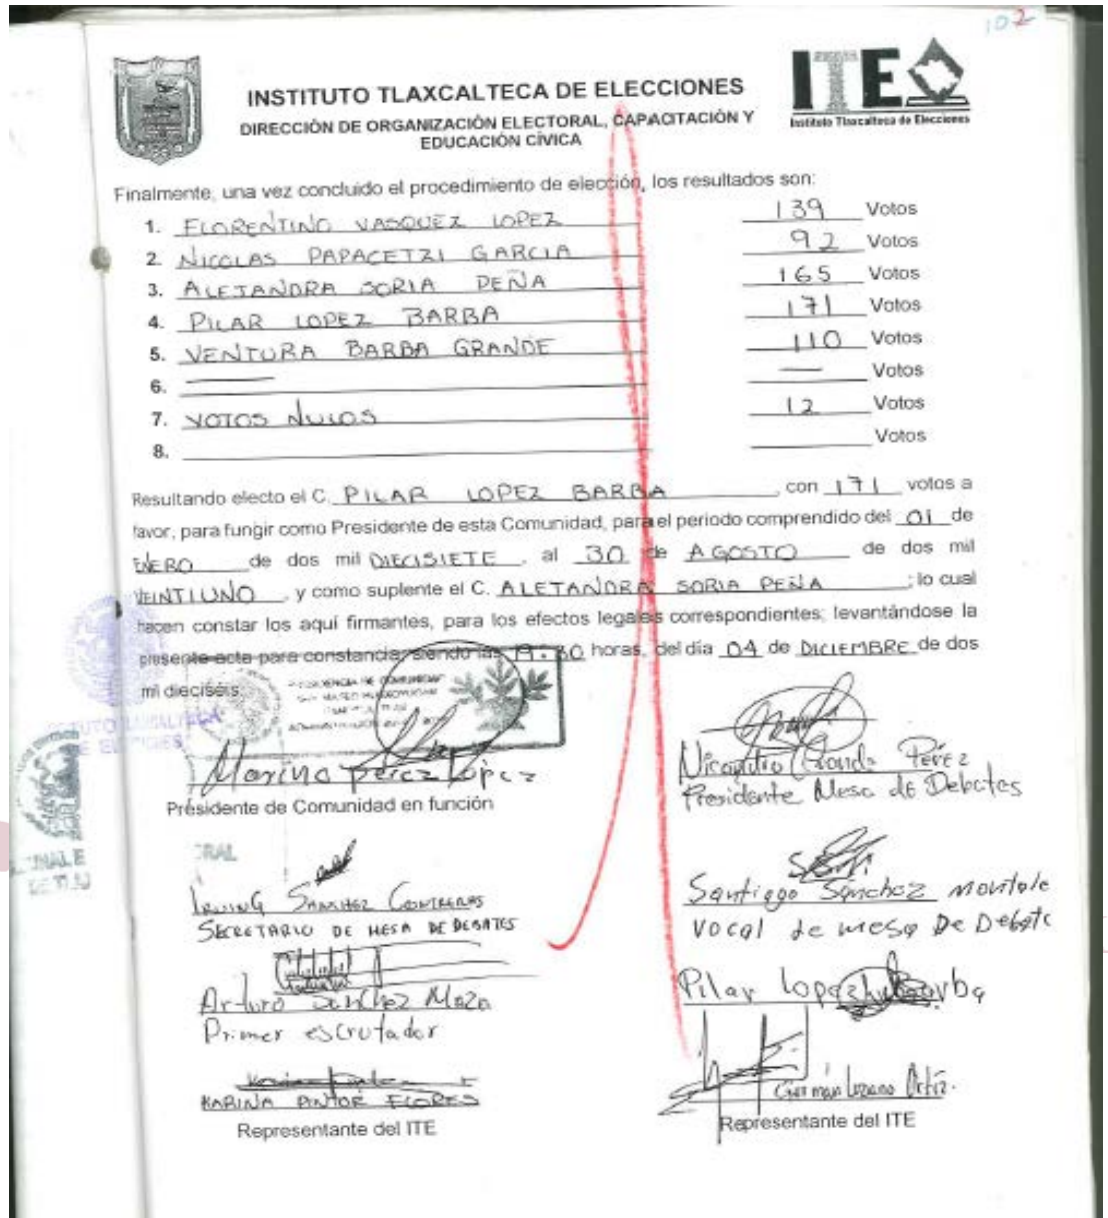 102
INSTITUTO TLAXCALTECA DE ELECCIONES
DIRECCIÓN DE ORGANIZACIÓN ELECTORAL, CAPACITACIÓN Y
EDUCACIÓN CÍVICA
ITE
Instituto Tlaxcalteca de Elecciones
Finalmente, una vez concluido el procedimiento de elección, los resultados son:
1. FLORENTINO VASQUEZ LOPEZ 139 Votos
2 NICOLAS PAPACETZI GARCIA 92 Votos
3. ALEJANDRA SORIA PEÑA 165 Votos
4. PILAR LOPEZ BARBA 171 Votos
5. VENTURA BARBA GRANDE 110 Votos
6. — — Votos
7. VOTOS NULOS 12 Votos
8. Votos
Resultando electo el C. PILAR LOPEZ BARBA con 171 votos a
favor, para fungir como Presidente de esta Comunidad, para el periodo comprendido del 01 de
ENERO de dos mil DIECISIETE, al 30 de AGOSTO de dos mil
VEINTIUNO, y como suplente el C. ALEJANDRA SORIA PEÑA; lo cual
hacen constar los aquí firmantes, para los efectos legales correspondientes; levantándose la
presente acta para constancia, siendo las 19:30 horas, del día 04 de DICIEMBRE de dos
mil dieciséis.
PRESIDENCIA DE COMUNIDAD
Marino Pérez López
Presidente de Comunidad en función
Pérez
Presidente Mesa de Debates
IRVING SANCHEZ CONTRERAS
SECRETARIO DE MESA DE DEBATES
Santiago Sánchez
Vocal de mesa De Debate
Arturo Sanchez Maza
Primer escrutador
Pilar Lopez Barba
KARINA PINTOR FLORES
Representante del ITE
Germán Lozano Ortíz.
Representante del ITE